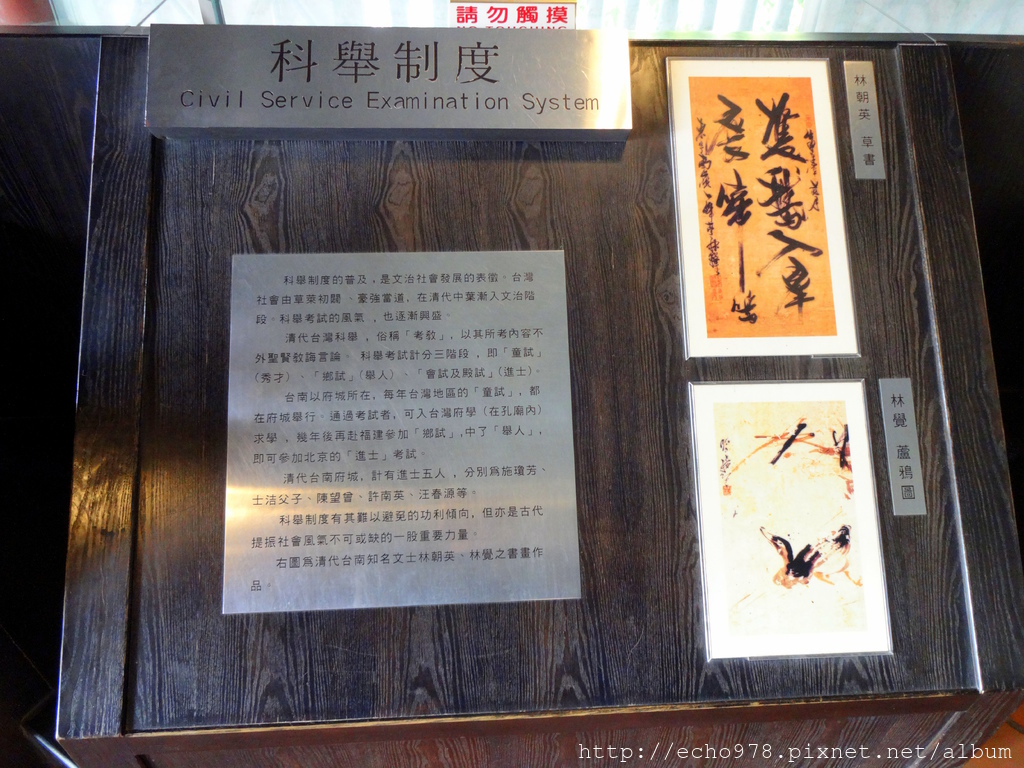 請勿觸摸
NO TOUCHING
科舉制度
Civil Service Examination System
科舉制度的普及，是文治社會發展的表徵。台灣
社會由草萊初闢、豪強當道，在清代中葉漸入文治階
段。科舉考試的風氣，也逐漸興盛。
清代台灣科舉，俗稱「考教」，以其所考內容不
外聖賢教誨言論。科舉考試計分三階段，即「童試」
（秀才）、「鄉試」（舉人）、「會試及殿試」（進士）。
台南以府城所在，每年台灣地區的「童試」，都
在府城舉行。通過考試者，可入台灣府學（在孔廟內）
求學，幾年後再赴福建參加「鄉試」，中了「舉人」，
即可參加北京的「進士」考試。
清代台南府城，計有進士五人，分別為施瓊芳、
士洁父子、陳望曾、許南英、汪春源等。
科舉制度有其難以避免的功利傾向，但亦是古代
提振社會風氣不可或缺的一股重要力量。
右圖為清代台南知名文士林朝英、林覺之書畫作
品。
林朝英 草書
林覺 蘆鴉圖
http://echo978.pixnet.net/album